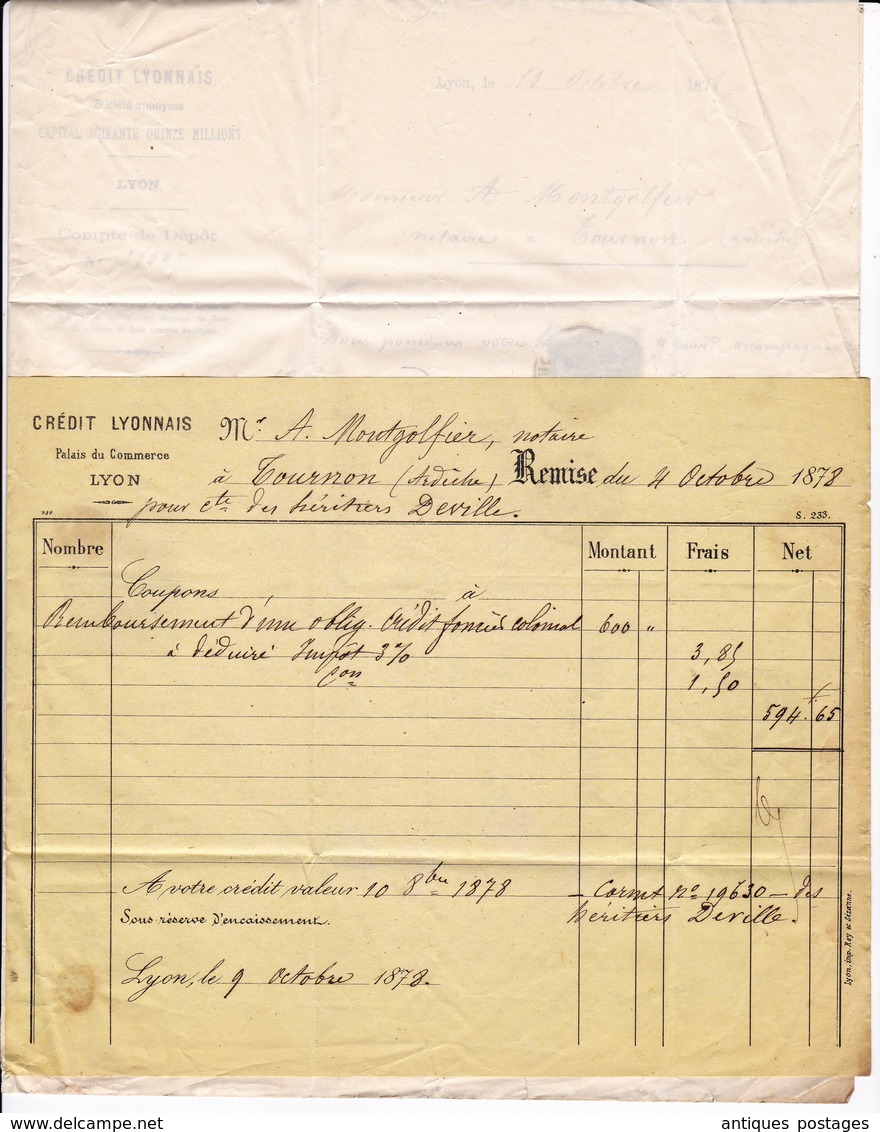 CRÉDIT LYONNAIS
Société anonyme
CAPITAL SOIXANTE QUINZE MILLIONS
LYON
Compte de Dépôt
Lyon, le 10 Octobre 187
Monsieur A Montgolfier
notaire a Tournon (Ardèche)
Nous
accompagnant
CRÉDIT LYONNAIS
Palais du Commerce
LYON
Mr. A. Montgolfier, notaire
à Tournon (Ardèche) Remise du 4 Octobre 1878
pour cte des héritiers Deville.
S. 233.
Nombre Montant Frais Net
Coupons, à
Remboursement d'une oblig. Crédit foncier colonial 600 "
à déduire Impôt 3% 3,85
Con 1,50
594.65
A votre crédit valeur 10 8bre 1878 - Carnet no 19630 - des
Sous réserve d'encaissement. héritiers Deville.
Lyon, le 9 Octobre 1878.
Lyon, imp. Rey et Sézanne.
antiques postages